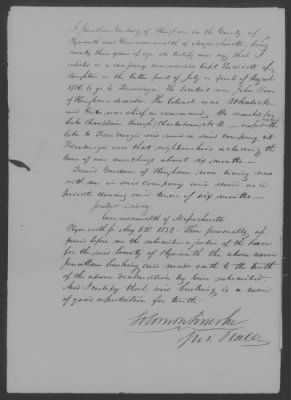 I Jonathan Cushing of Hingham in the County of
Plymouth and Commonwealth of Massachusetts, being
seventy three years of age do testify and say that I
enlisted in a company commanded by Capt Endicott of
Stoughton in the latter part of July or first of August
1776 to go to Ticonderoga. The Lieut was John
of Hingham The Colonel was Wheelock
and Gates was chief in command, We marched by
Lake Champlain through Charlestown No 4 crossed the
lake to Ticonderoga and was in said company at
Ticonderoga and that neighbourhood including the
time of our marchings about six months —
David Gardner of Hingham now living was
with me in said company and served as a
private during said term of six months —
Jonathan Cushing
Commonwealth of Massachusetts
Plymouth ss Aug 1832 Then personally ap
peared before me the subscriber a justice of the peace
for the said county of Plymouth the above named
Jonathan Cushing and made oath to the truth
of the above declaration by him subscribed.
And I certify that said Cushing is a man
of good reputation for truth
Solomon Lincoln
Jus. Peace